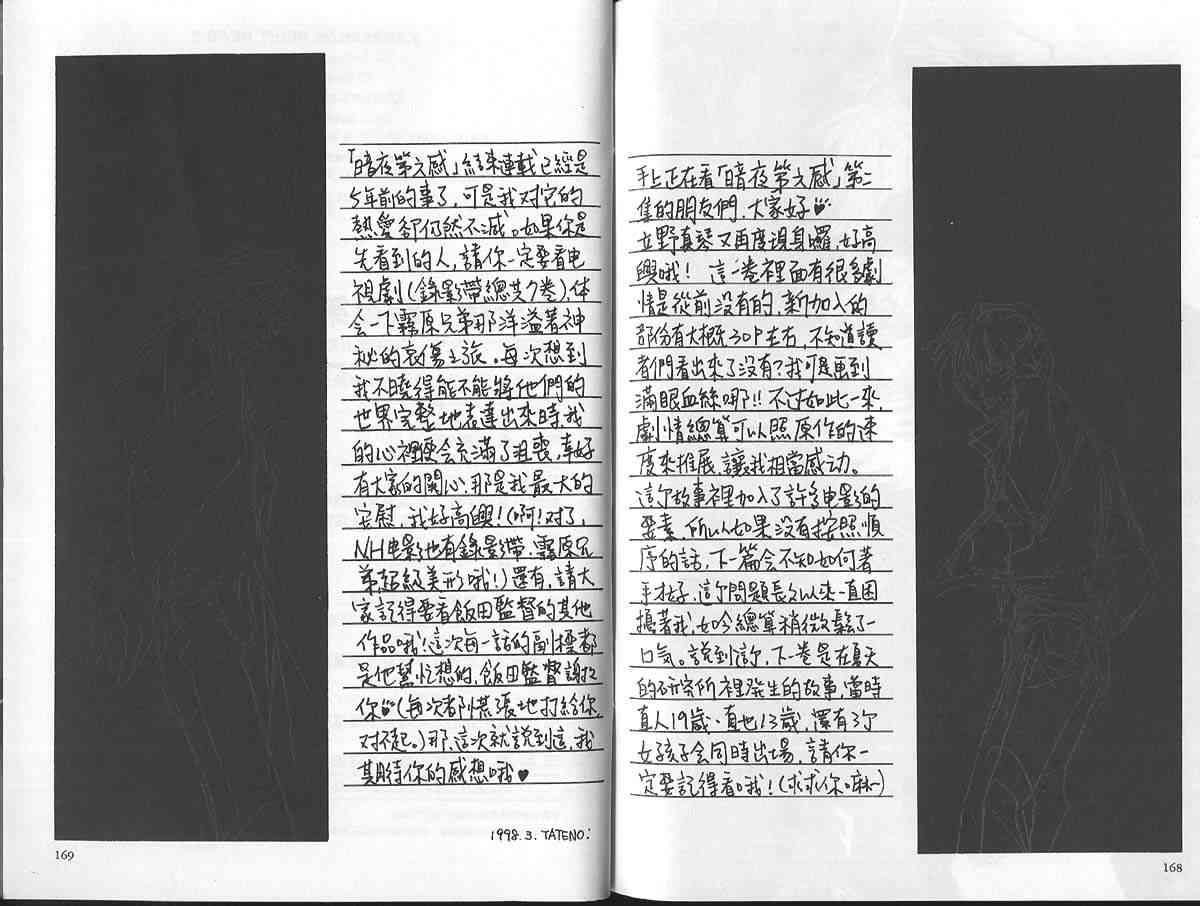 手上正在看「暗夜第六感」第二
集的朋友們,大家好♥
立野真琴又再度現身囉,好高
興哦! 這一卷裡面有很多劇
情是從前没有的,新加入的
部份有大概30P左右,不知道讀
者們看出來了没有?我可是画到
滿眼血絲哪!!不过如此一來,
劇情總算可以照原作的速
度來推展,讓我相當感动。
這个故事裡加入了許多电影的
要素,所以如果没有按照順
序的話,下一篇会不知如何著
手才好,這个問題長久以來一直困
擾著我,如今總算稍微鬆了一
口气。說到這,下一卷是在夏天
的研究所裡発生的故事,當時
真人19歲、直也13歲,還有3个
女孩子会同時出場,請你一
定要記得看哦!(求求你嘛~)
168
「暗夜第六感」結束連載已經是
5年前的事了,可是我对它的
熱愛卻仍然不減。如果你是
先看到的人,請你一定要看电
視劇(錄影帶總共7卷),体
会一下霧原兄弟那洋溢著神
秘的哀傷之旅。每次想到
我不曉得能不能將他們的
世界完整地表達出來時,我
的心裡便会充滿了沮喪,幸好
有大家的関心,那是我最大的
安慰,我好高興!(啊!对了,
NH电影也有錄影帶,霧原兄
弟超級美形哦!)還有,請大
家記得要看飯田監督的其他
作品哦!這次每一話的副標都
是他幫忙想的,飯田監督謝謝
你♥(每次都慌張地打給你,
对不起。)那,這次就說到這,我
期待你的感想哦♥
1998.3.TATENO:
169